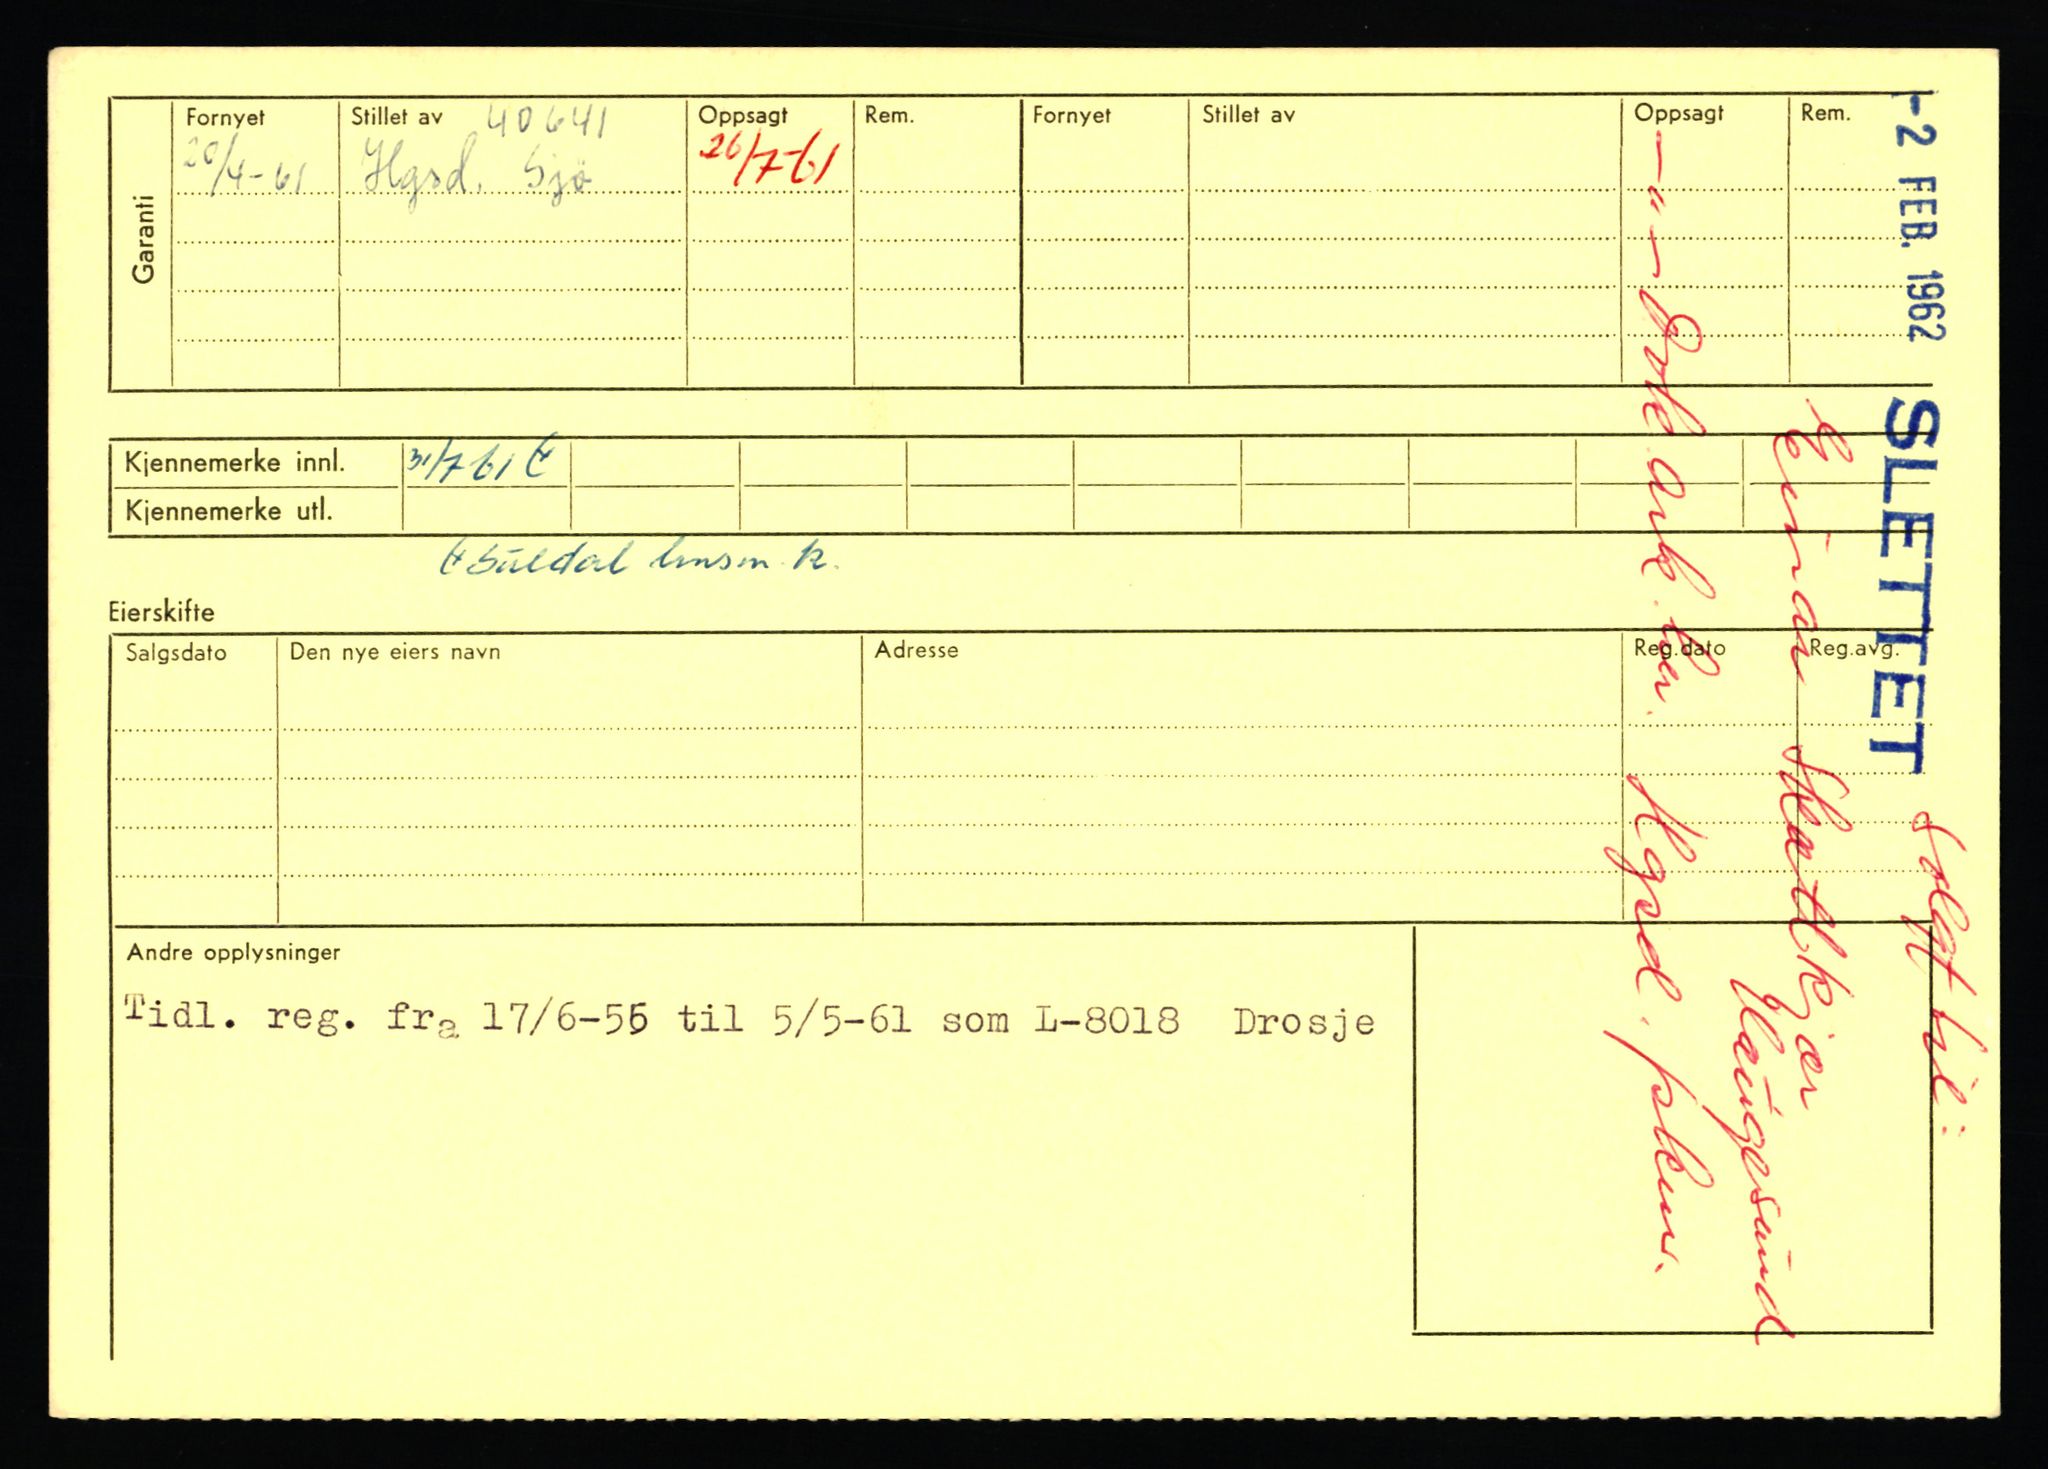 Garanti
Fornyet Stillet av 40641 Oppsagt Rem. Fornyet Stillet av Oppsagt Rem.
20/4-61 Hgsd. Sjø 26/7-61
Kjennemerke innl. 31/7 61
Kjennemerke utl.
Suldal lensm. k.
Eierskifte
Salgsdato Den nye eiers navn Adresse Reg.dato Reg.avg.
Andre opplysninger
Tidl. reg. fra 17/6-55 til 5/5-61 som L-8018 Drosje
-2 FEB. 1962 SLETTET
Solgt til:
Einar Skartkjær
Haugesund
-"- Hgsd.